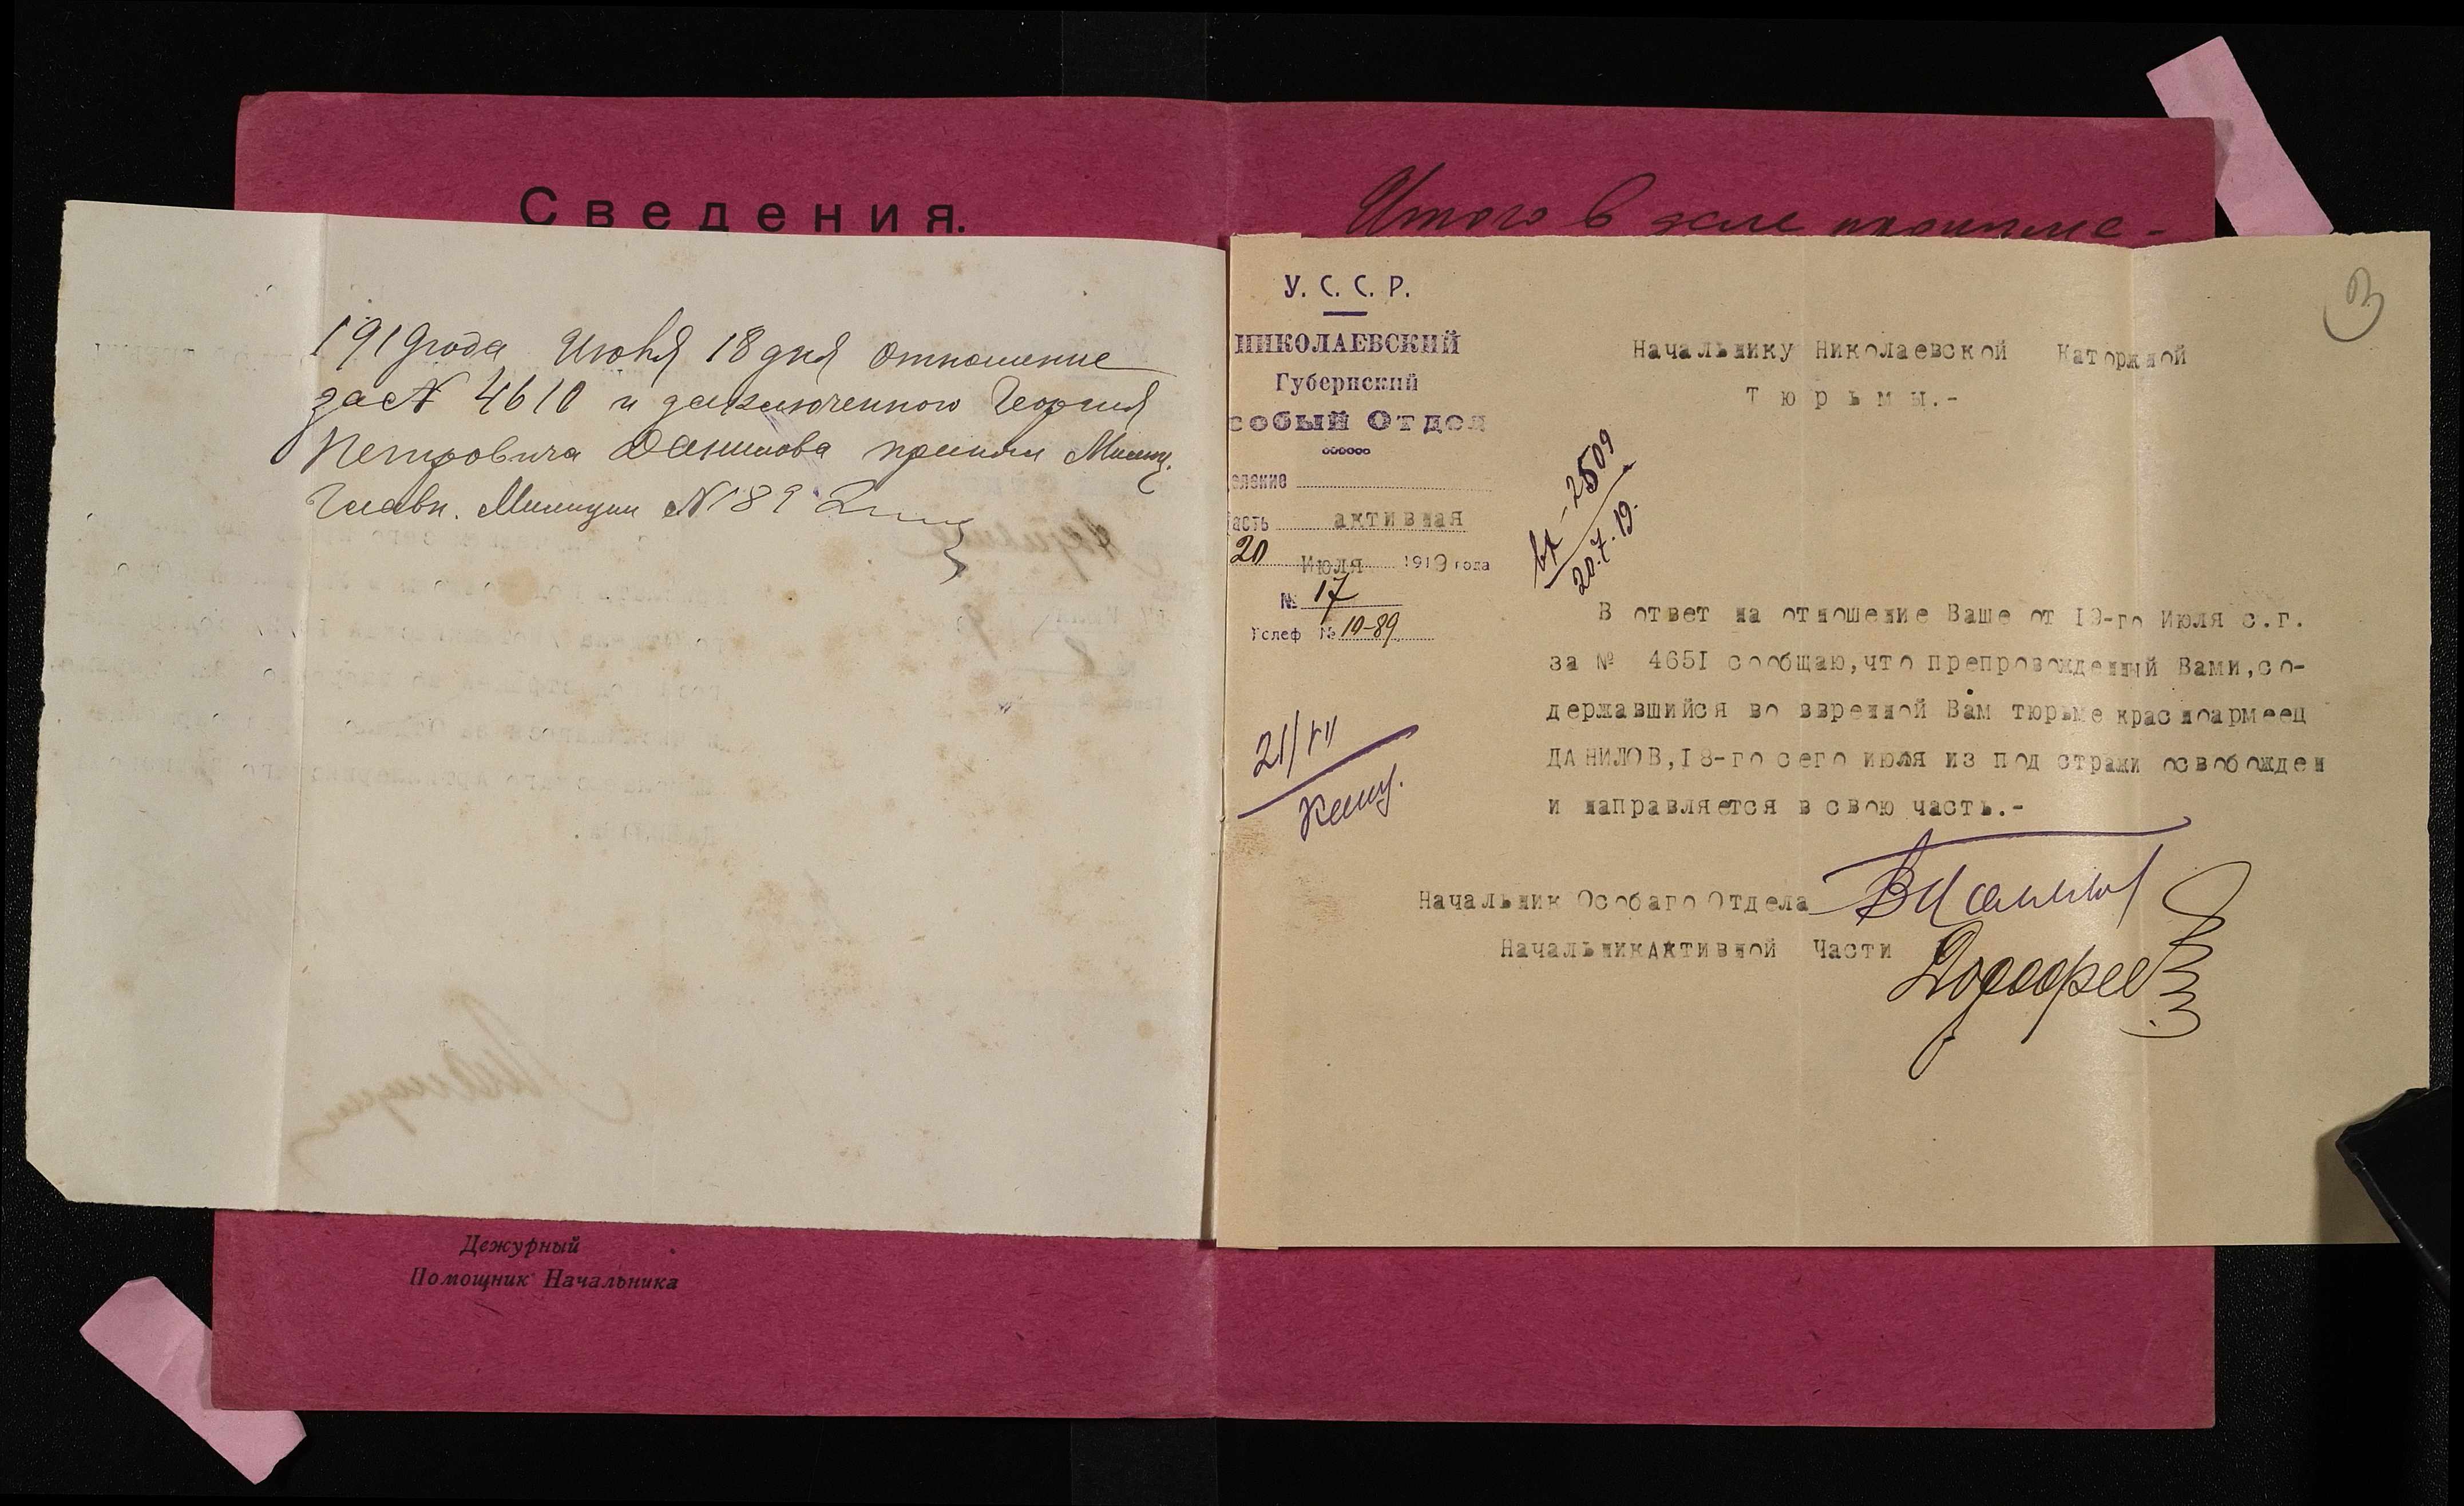 Сведения.
1919 года Июля 18 дня отношение
за № 4610 и заключенного Георгия
Петровича Данилова принял Милиц.
Главн. Милиции № 189
Дежурный
Помощник Начальника
Итого в деле
3
У. С. С. Р.
НИКОЛАЕВСКИЙ
Губернский
собый Отдел
еление
асть активная
20 Июля 1919 года
№ 17
Телеф № 10-89
Начальнику Николаевской Каторжной
Тюрьмы.-
вх - 2509
20.7.19.
В ответ на отношение Ваше от 19-го Июля с.г.
за № 465I сообщаю,что препровожденный Вами,со-
державшийся во ввренной Вам тюрьме красноармеец
ДАНИЛОВ,I8-го сего июля из под стражи освобожден
и направляется в свою часть.-
21/VII
Начальник Особаго Отдела
Начальник Активной Части